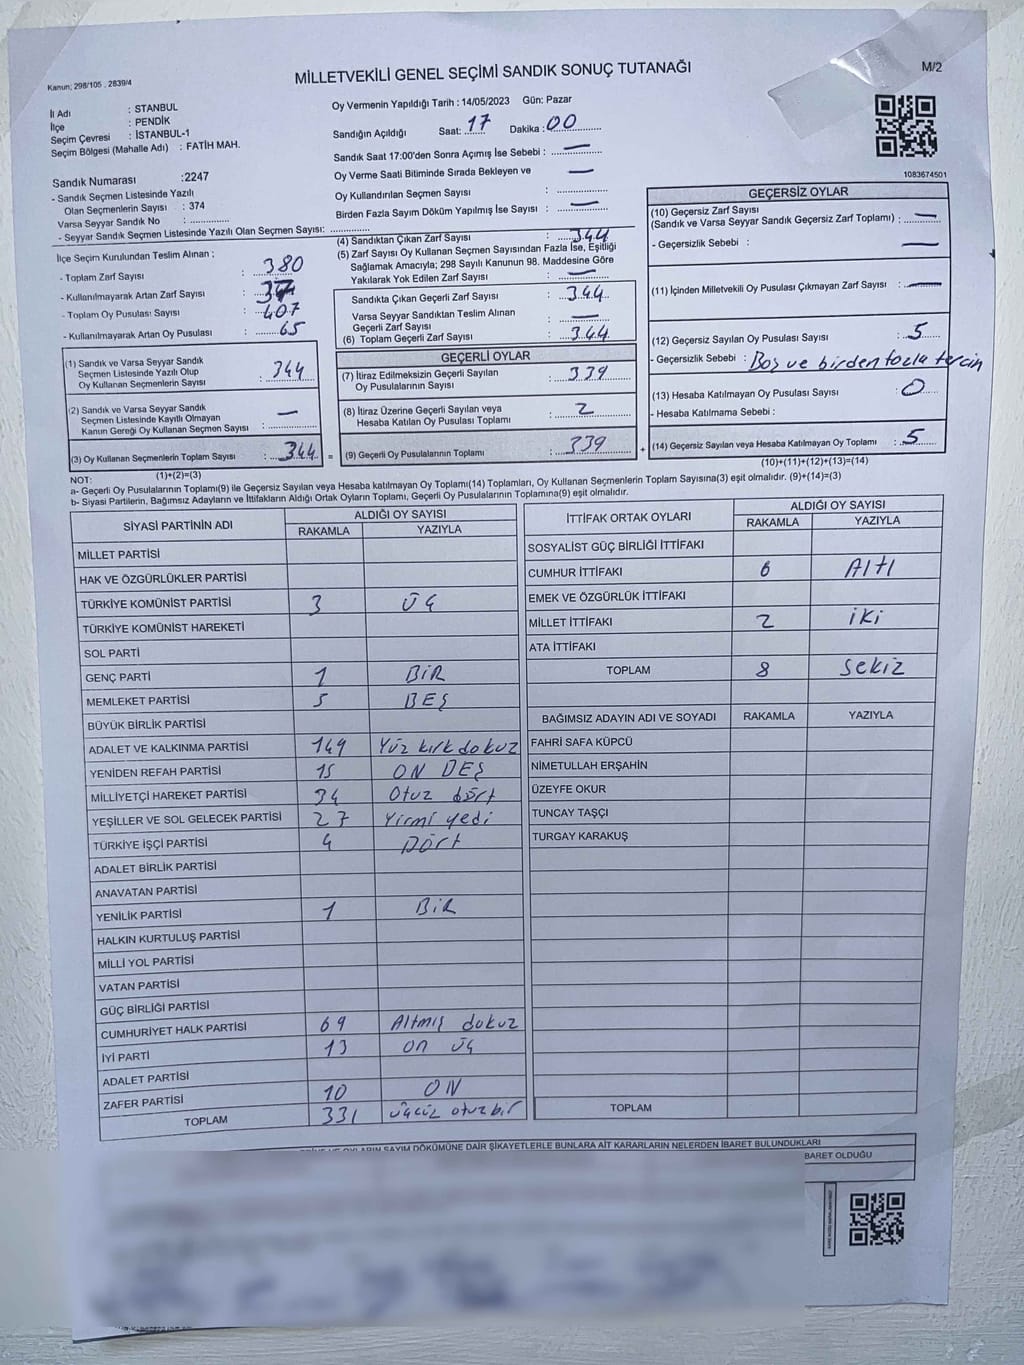 Kanun; 298/105 , 2839/4
MİLLETVEKİLİ GENEL SEÇİMİ SANDIK SONUÇ TUTANAĞI
M/2
İl Adı : STANBUL
İlçe : PENDİK
Seçim Çevresi : İSTANBUL-1
Seçim Bölgesi (Mahalle Adı) : FATİH MAH.
Oy Vermenin Yapıldığı Tarih : 14/05/2023 Gün: Pazar
Sandığın Açıldığı Saat: 17 Dakika : 00
Sandık Saat 17:00'den Sonra Açımış İse Sebebi : —
Oy Verme Saati Bitiminde Sırada Bekleyen ve —
Oy Kullandırılan Seçmen Sayısı :
Birden Fazla Sayım Döküm Yapılmış İse Sayısı : —
1083674501
Sandık Numarası :2247
- Sandık Seçmen Listesinde Yazılı
Olan Seçmenlerin Sayısı : 374
Varsa Seyyar Sandık No :
- Seyyar Sandık Seçmen Listesinde Yazılı Olan Seçmen Sayısı:
İlçe Seçim Kurulundan Teslim Alınan ;
- Toplam Zarf Sayısı : 380
- Kullanılmayarak Artan Zarf Sayısı : 37
- Toplam Oy Pusulası Sayısı : 407
- Kullanılmayarak Artan Oy Pusulası : 65
(1) Sandık ve Varsa Seyyar Sandık
Seçmen Listesinde Yazılı Olup
Oy Kullanan Seçmenlerin Sayısı : 344
(2) Sandık ve Varsa Seyyar Sandık
Seçmen Listesinde Kayıtlı Olmayan
Kanun Gereği Oy Kullanan Seçmen Sayısı : —
(3) Oy Kullanan Seçmenlerin Toplam Sayısı : 344 =
(1)+(2)=(3)
(4) Sandıktan Çıkan Zarf Sayısı : 344
(5) Zarf Sayısı Oy Kullanan Seçmen Sayısından Fazla İse, Eşitliği
Sağlamak Amacıyla; 298 Sayılı Kanunun 98. Maddesine Göre
Yakılarak Yok Edilen Zarf Sayısı : —
Sandıkta Çıkan Geçerli Zarf Sayısı : 344
Varsa Seyyar Sandıktan Teslim Alınan
Geçerli Zarf Sayısı : —
(6) Toplam Geçerli Zarf Sayısı : 344
GEÇERLİ OYLAR
(7) İtiraz Edilmeksizin Geçerli Sayılan
Oy Pusulalarının Sayısı : 339
(8) İtiraz Üzerine Geçerli Sayılan veya
Hesaba Katılan Oy Pusulası Toplamı : 2
(9) Geçerli Oy Pusulalarının Toplamı : 339 +
GEÇERSİZ OYLAR
(10) Geçersiz Zarf Sayısı
(Sandık ve Varsa Seyyar Sandık Geçersiz Zarf Toplamı) : —
- Geçersizlik Sebebi : —
(11) İçinden Milletvekili Oy Pusulası Çıkmayan Zarf Sayısı : —
(12) Geçersiz Sayılan Oy Pusulası Sayısı : 5
- Geçersizlik Sebebi : Boş ve birden fazla tercin
(13) Hesaba Katılmayan Oy Pusulası Sayısı : 0
- Hesaba Katılmama Sebebi :
(14) Geçersiz Sayılan veya Hesaba Katılmayan Oy Toplamı : 5
(10)+(11)+(12)+(13)=(14)
NOT:
a- Geçerli Oy Pusulalarının Toplamı(9) ile Geçersiz Sayılan veya Hesaba katılmayan Oy Toplamı(14) Toplamları, Oy Kullanan Seçmenlerin Toplam Sayısına(3) eşit olmalıdır. (9)+(14)=(3)
b- Siyasi Partilerin, Bağımsız Adayların ve İttifakların Aldığı Ortak Oyların Toplamı, Geçerli Oy Pusulalarının Toplamına(9) eşit olmalıdır.
SİYASİ PARTİNİN ADI ALDIĞI OY SAYISI
RAKAMLA YAZIYLA
MİLLET PARTİSİ
HAK VE ÖZGÜRLÜKLER PARTİSİ
TÜRKİYE KOMÜNİST PARTİSİ 3 ÜÇ
TÜRKİYE KOMÜNİST HAREKETİ
SOL PARTİ
GENÇ PARTİ 1 BİR
MEMLEKET PARTİSİ 5 BEŞ
BÜYÜK BİRLİK PARTİSİ
ADALET VE KALKINMA PARTİSİ 149 Yüz kırk dokuz
YENİDEN REFAH PARTİSİ 15 ON BEŞ
MİLLİYETÇİ HAREKET PARTİSİ 34 Otuz dört
YEŞİLLER VE SOL GELECEK PARTİSİ 27 Yirmi yedi
TÜRKİYE İŞÇİ PARTİSİ 4 Dört
ADALET BİRLİK PARTİSİ
ANAVATAN PARTİSİ
YENİLİK PARTİSİ 1 BİR
HALKIN KURTULUŞ PARTİSİ
MİLLİ YOL PARTİSİ
VATAN PARTİSİ
GÜÇ BİRLİĞİ PARTİSİ
CUMHURİYET HALK PARTİSİ 69 Altmış dokuz
İYİ PARTİ 13 on üç
ADALET PARTİSİ
ZAFER PARTİSİ 10 ON
TOPLAM 331 üçüz otuz bir
İTTİFAK ORTAK OYLARI ALDIĞI OY SAYISI
RAKAMLA YAZIYLA
SOSYALİST GÜÇ BİRLİĞİ İTTİFAKI
CUMHUR İTTİFAKI 6 Altı
EMEK VE ÖZGÜRLÜK İTTİFAKI
MİLLET İTTİFAKI 2 iki
ATA İTTİFAKI
TOPLAM 8 sekiz
BAĞIMSIZ ADAYIN ADI VE SOYADI RAKAMLA YAZIYLA
FAHRİ SAFA KÜPCÜ
NİMETULLAH ERŞAHİN
ÜZEYFE OKUR
TUNCAY TAŞÇI
TURGAY KARAKUŞ
TOPLAM
SAYIM DÖKÜMÜNE DAİR ŞİKAYETLERLE BUNLARA AİT KARARLARIN NELERDEN İBARET BULUNDUKLARI
BARET OLDUĞU